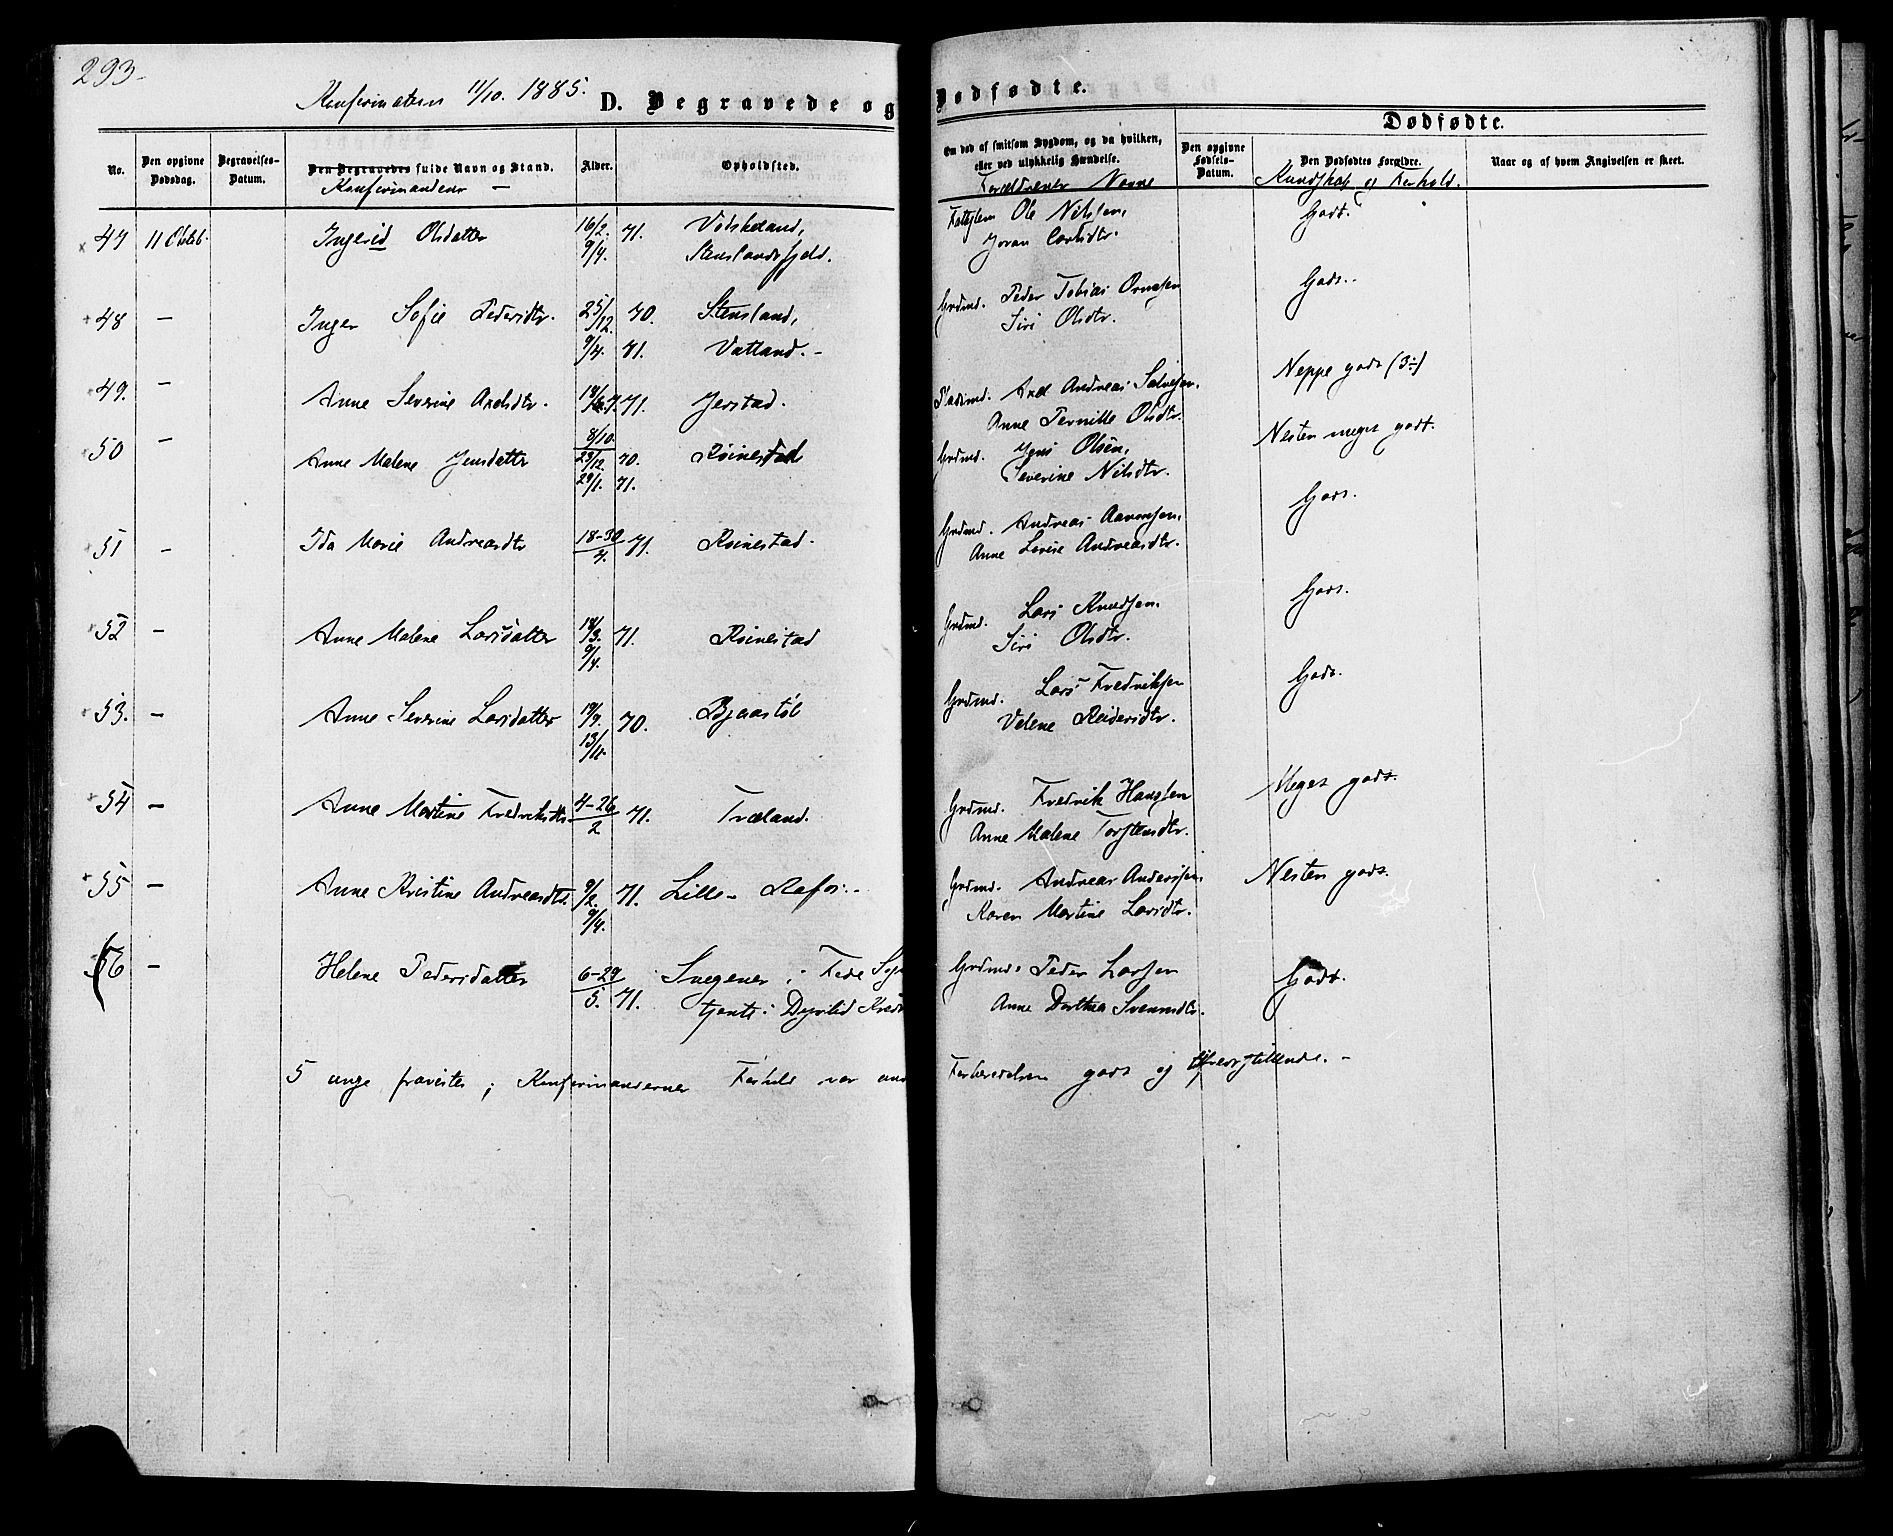 293
Konfirmation 11/10. 1885.
D. Begravede og Dødfødte.
Dødfødte.
No.
Den opgivne Dødsdag.
Begravelses-Datum.
Den Begravedes fulde Navn og Stand.
Konfirmandens
Alder.
Opholdsted.
Om død af smitsom Sygdom, og da hvilken, eller ved ulykkelig Hændelse.
Forældrenes Navne
Den opgivne Fødsels-Datum.
Den Dødfødtes Forældre.
Kundskab og Forhold.
Naar og af hvem Angivelsen er skeet.
47 11 Oktob. Ingerid Olsdatter 16/2. 9/4 71. Stenslandsfjeld. Ole Nilsen, Godt.
48 — Inger Sofie Pedersdtr. 25/12. 70. 9/4. 71. Stensland, Vatland. Grdmd. Peder Tobias Siri Olsdtr. Godt.
49. — Anne Severine Axelsdtr. 71. Jerstad. Axel Andreas Salvesen. Anne Pernille Olsdtr. Neppe godt (3÷)
50 — Anne Malene Jensdatter 8/10. 29/12 70. 29/1. 71. Røinestad Grdmd. Jens Olsen, Severine Nilsdtr. Nesten meget godt.
51 — Ida Marie Andreasdtr 18-30/4. 71. Røinestad. Grdmd. Andreas Aanensen, Anne Lovise Andreasdtr. Godt.
52 — Anne Malene Larsdatter 18/3. 9/4. 71. Røinestad Grdmd. Lars Knudsen. Siri Olsdtr. Godt.
53. — Anne Severine Larsdatter 19/9. 13/11. 70. Bjaastøl Grdmd. Lars Fredriksen Velene Reiersdtr. Godt.
54 — Anne Martine Fredriksdtr. 4-26/2 71. Træland. Grdmd. Fredrik Hansen Anne Malene Torstensdtr. Meget godt.
55 — Anne Kristine Andreasdtr. 9/2. 9/4. 71. Lille-Refs.- Grdmd. Andreas Andersen, Karen Martine Larsdtr. Nesten godt.
56 — Helene Pedersdatter 6-29/5. 71. i Fede tjente i Grdmd: Peder Larsen Anne Dorthea Svennsdtr. Godt.
5 unge fravistes; Konfirmandernes Forhold var Forberedelsen godt og tilfredsstillende. -